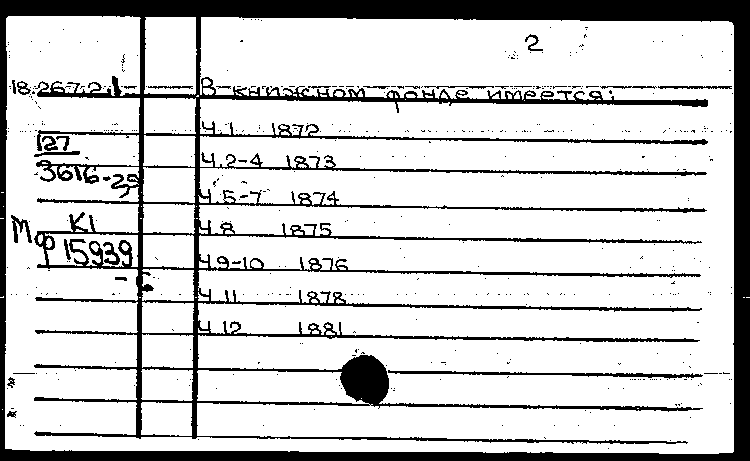 2
18.267.2.1 В книжном фонде имеется:
Ч.1 1872
127
Ч.2-4 1873
3616-25
Ч.5-7 1874
К1
Ч.8 1875
Мф 15939
Ч.9-10 1876
Ч.11 1878
Ч.12 1881